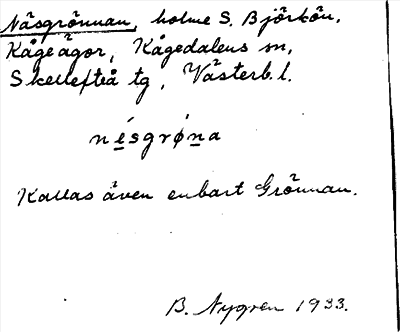 Näsgrönnan, holme S. Björkön,
Kågeägor, Kågedalens sn,
Skellefteå tg, Västerb. l.
nésgrøna
Kallas även enbart Grönnan.
B. Nygren 1933.